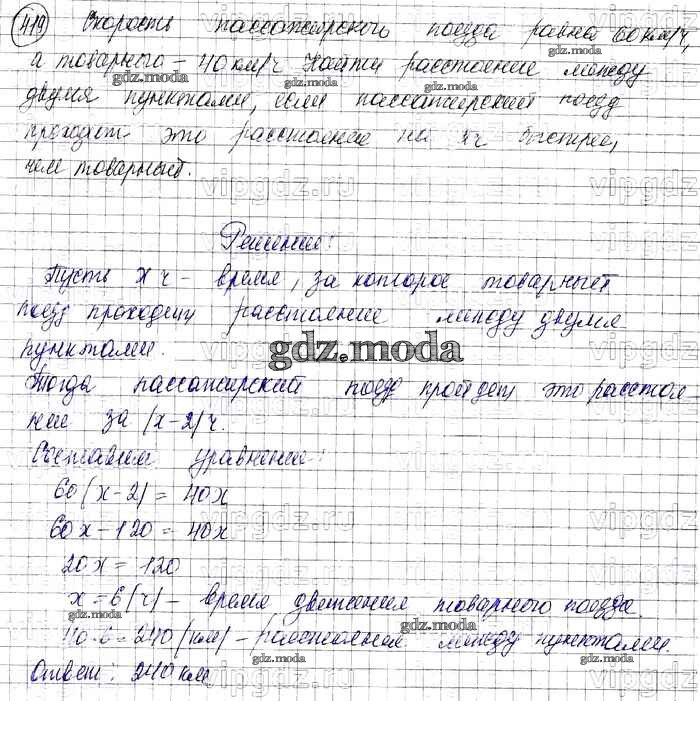 419 Скорость пассажирского поезда равна 60 км/ч,
а товарного – 40 км/ч. Найти расстояние между
двумя пунктами, если пассажирский поезд
проходит это расстояние на 2ч быстрее,
чем товарный.
Решение:
Пусть x ч – время, за которое товарный
поезд проходит расстояние между двумя
пунктами.
Тогда пассажирский поезд пройдет это расстоя
ние за (x-2)ч.
Составим уравнение:
60(x-2) = 40x
60x-120 = 40x
20x = 120
x = 6(ч) – время движения товарного поезда.
40·6 = 240(км) – расстояние между пунктами.
Ответ: 240 км
gdz.moda
vipgdz.ru